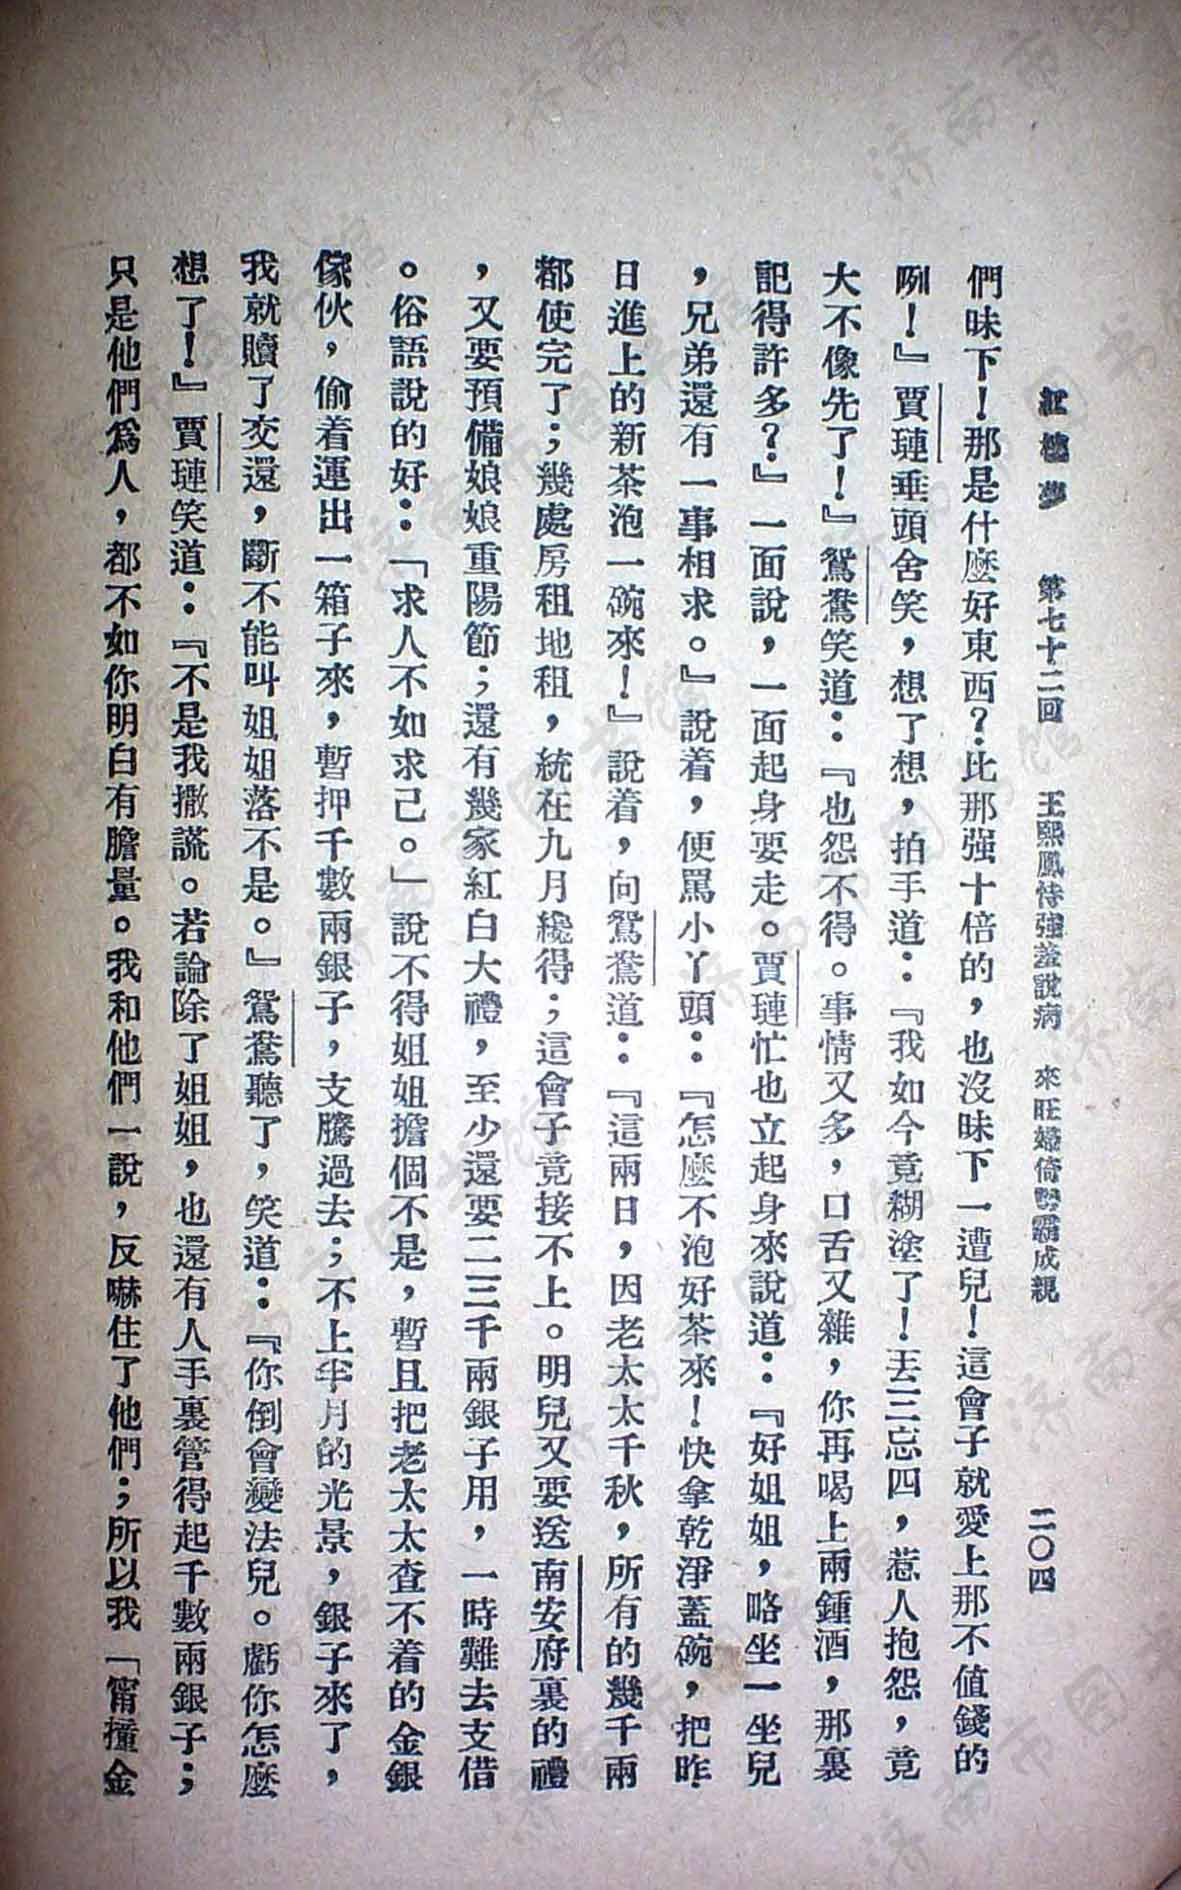 紅樓夢　第七十二回　王熙鳳恃強羞說病　來旺婦倚勢霸成親　二〇四
們昧下！那是什麼好東西？比那强十倍的，也沒昧下一遭兒！這會子就愛上那不值錢的
咧！』賈璉垂頭含笑，想了想，拍手道：『我如今竟糊塗了！丟三忘四，惹人抱怨，竟
大不像先了！』鴛鴦笑道：『也怨不得。事情又多，口舌又雜，你再喝上兩鍾酒，那裏
記得許多？』一面說，一面起身要走。賈璉忙也立起身來說道：『好姐姐，略坐一坐兒
，兄弟還有一事相求。』說着，便罵小丫頭：『怎麼不泡好茶來！快拿乾淨蓋碗，把昨
日進上的新茶泡一碗來！』說着，向鴛鴦道：『這兩日，因老太太千秋，所有的幾千兩
都使完了；幾處房租地租，統在九月纔得；這會子竟接不上。明兒又要送南安府裏的禮
，又要預備娘娘重陽節；還有幾家紅白大禮，至少還要二三千兩銀子用，一時難去支借
。俗語說的好：「求人不如求己。」說不得姐姐擔個不是，暫且把老太太查不着的金銀
傢伙，偷着運出一箱子來，暫押千數兩銀子，支騰過去；不上半月的光景，銀子來了，
我就贖了交還，斷不能叫姐姐落不是。』鴛鴦聽了，笑道：『你倒會變法兒。虧你怎麼
想了！』賈璉笑道：『不是我撒謊。若論除了姐姐，也還有人手裏管得起千數兩銀子；
只是他們爲人，都不如你明白有膽量。我和他們一說，反嚇住了他們；所以我「甯撞金
济南市图书馆